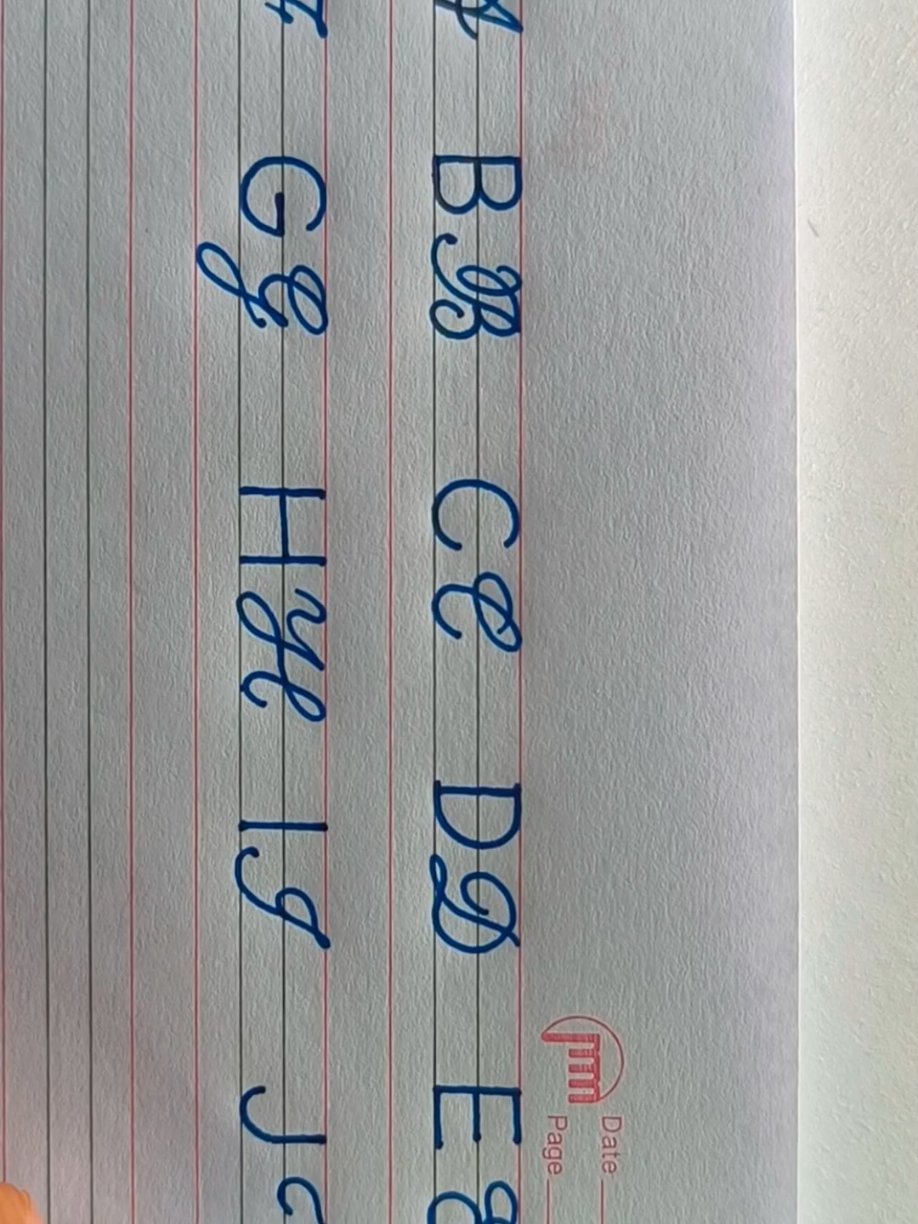 Date
Page
A B B C C D D E E
F G G H H I I J J